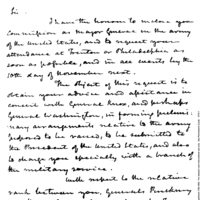 Sir.
I have the honor to inclose your
Commission as Major General in the army
of the United States, and to request your
attendance at Trenton or Philadelphia as
soon as possible, and in all events by the
10th day of November next.
The object of this request is to
obtain your advice and assistance in
concert with General Knox, and perhaps
General Washington, in forming prelimi-
nary arrangements relative to the army
proposed to be raised, to be submitted to
the President of the United States, and also
to charge you specially with a branch of
the military service.
With respect to the relative
rank between you, Generals Pinckney